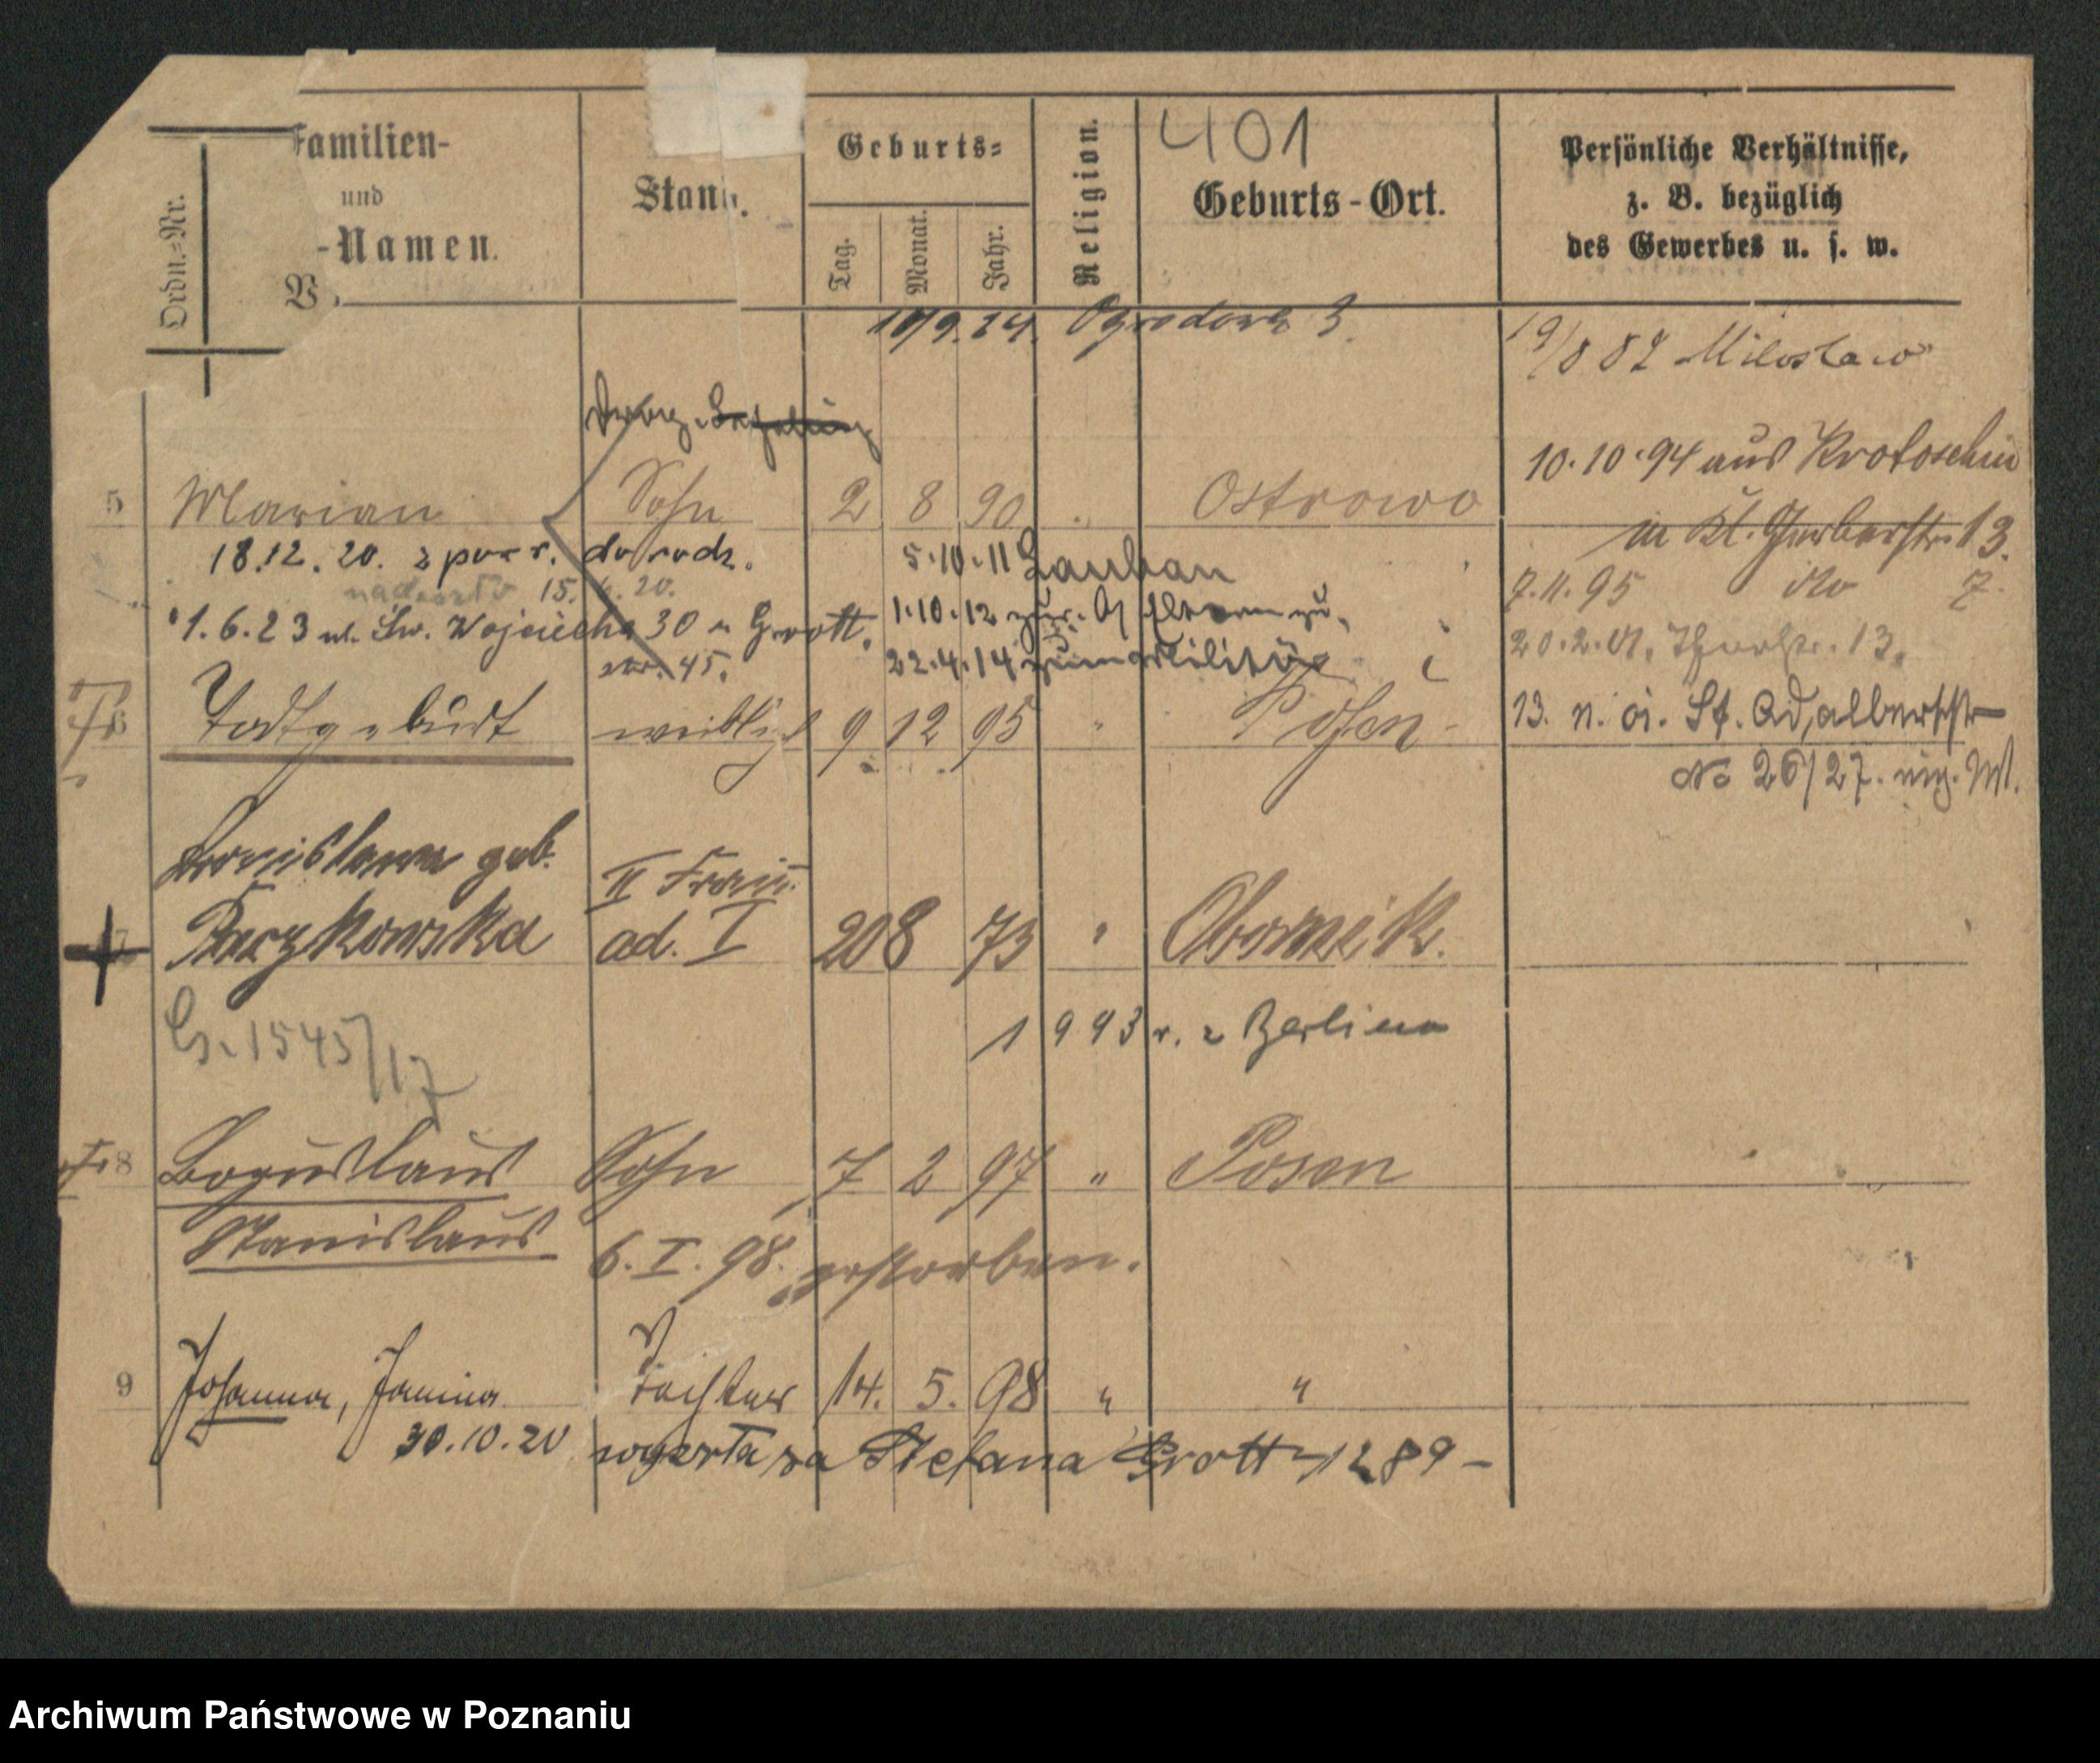 401
Ordn.=Nr.
Familien-
und
-Namen.
V
Stand.
Geburts=
Tag.
Monat.
Jahr.
Religion.
Geburts-Ort.
Persönliche Verhältnisse,
z. B. bezüglich
des Gewerbes u. s. w.
Ogrodowa 3.
19/8 87 Miloslaw
10.10.94 aus Krotoschin
5 Marian Sohn 2 8 90 Ostrowo
in Kl. Gerberstr. 13.
18.12.20. z pow. do rodz.
5.10.11 Lauban
7.11.95 do 7.
15. 20.
1.6.23 ul. Św. Wojciecha 30 u Grott.
1.10.12 zur. Eltern zu.
20.2. 13.
45.
22.4.14 zum Militär
6 Todtgeburt weiblich 9 12 95 " Posen
13. St. Adalbertstr
No 26/27.
Bronislawa geb.
II Frau
7 ad. I 20 8 73 " Obornik.
1943 r. z Berlina
G. 1545/17
8 Boguslaus Sohn 7 2 97 " Posen
Stanislaus
6. I. 98. verstorben.
9 Johanna, Janina Tochter 14. 5. 98 " "
30.10.20 wyszła za Stefana Grott 1289 –
Archiwum Państwowe w Poznaniu